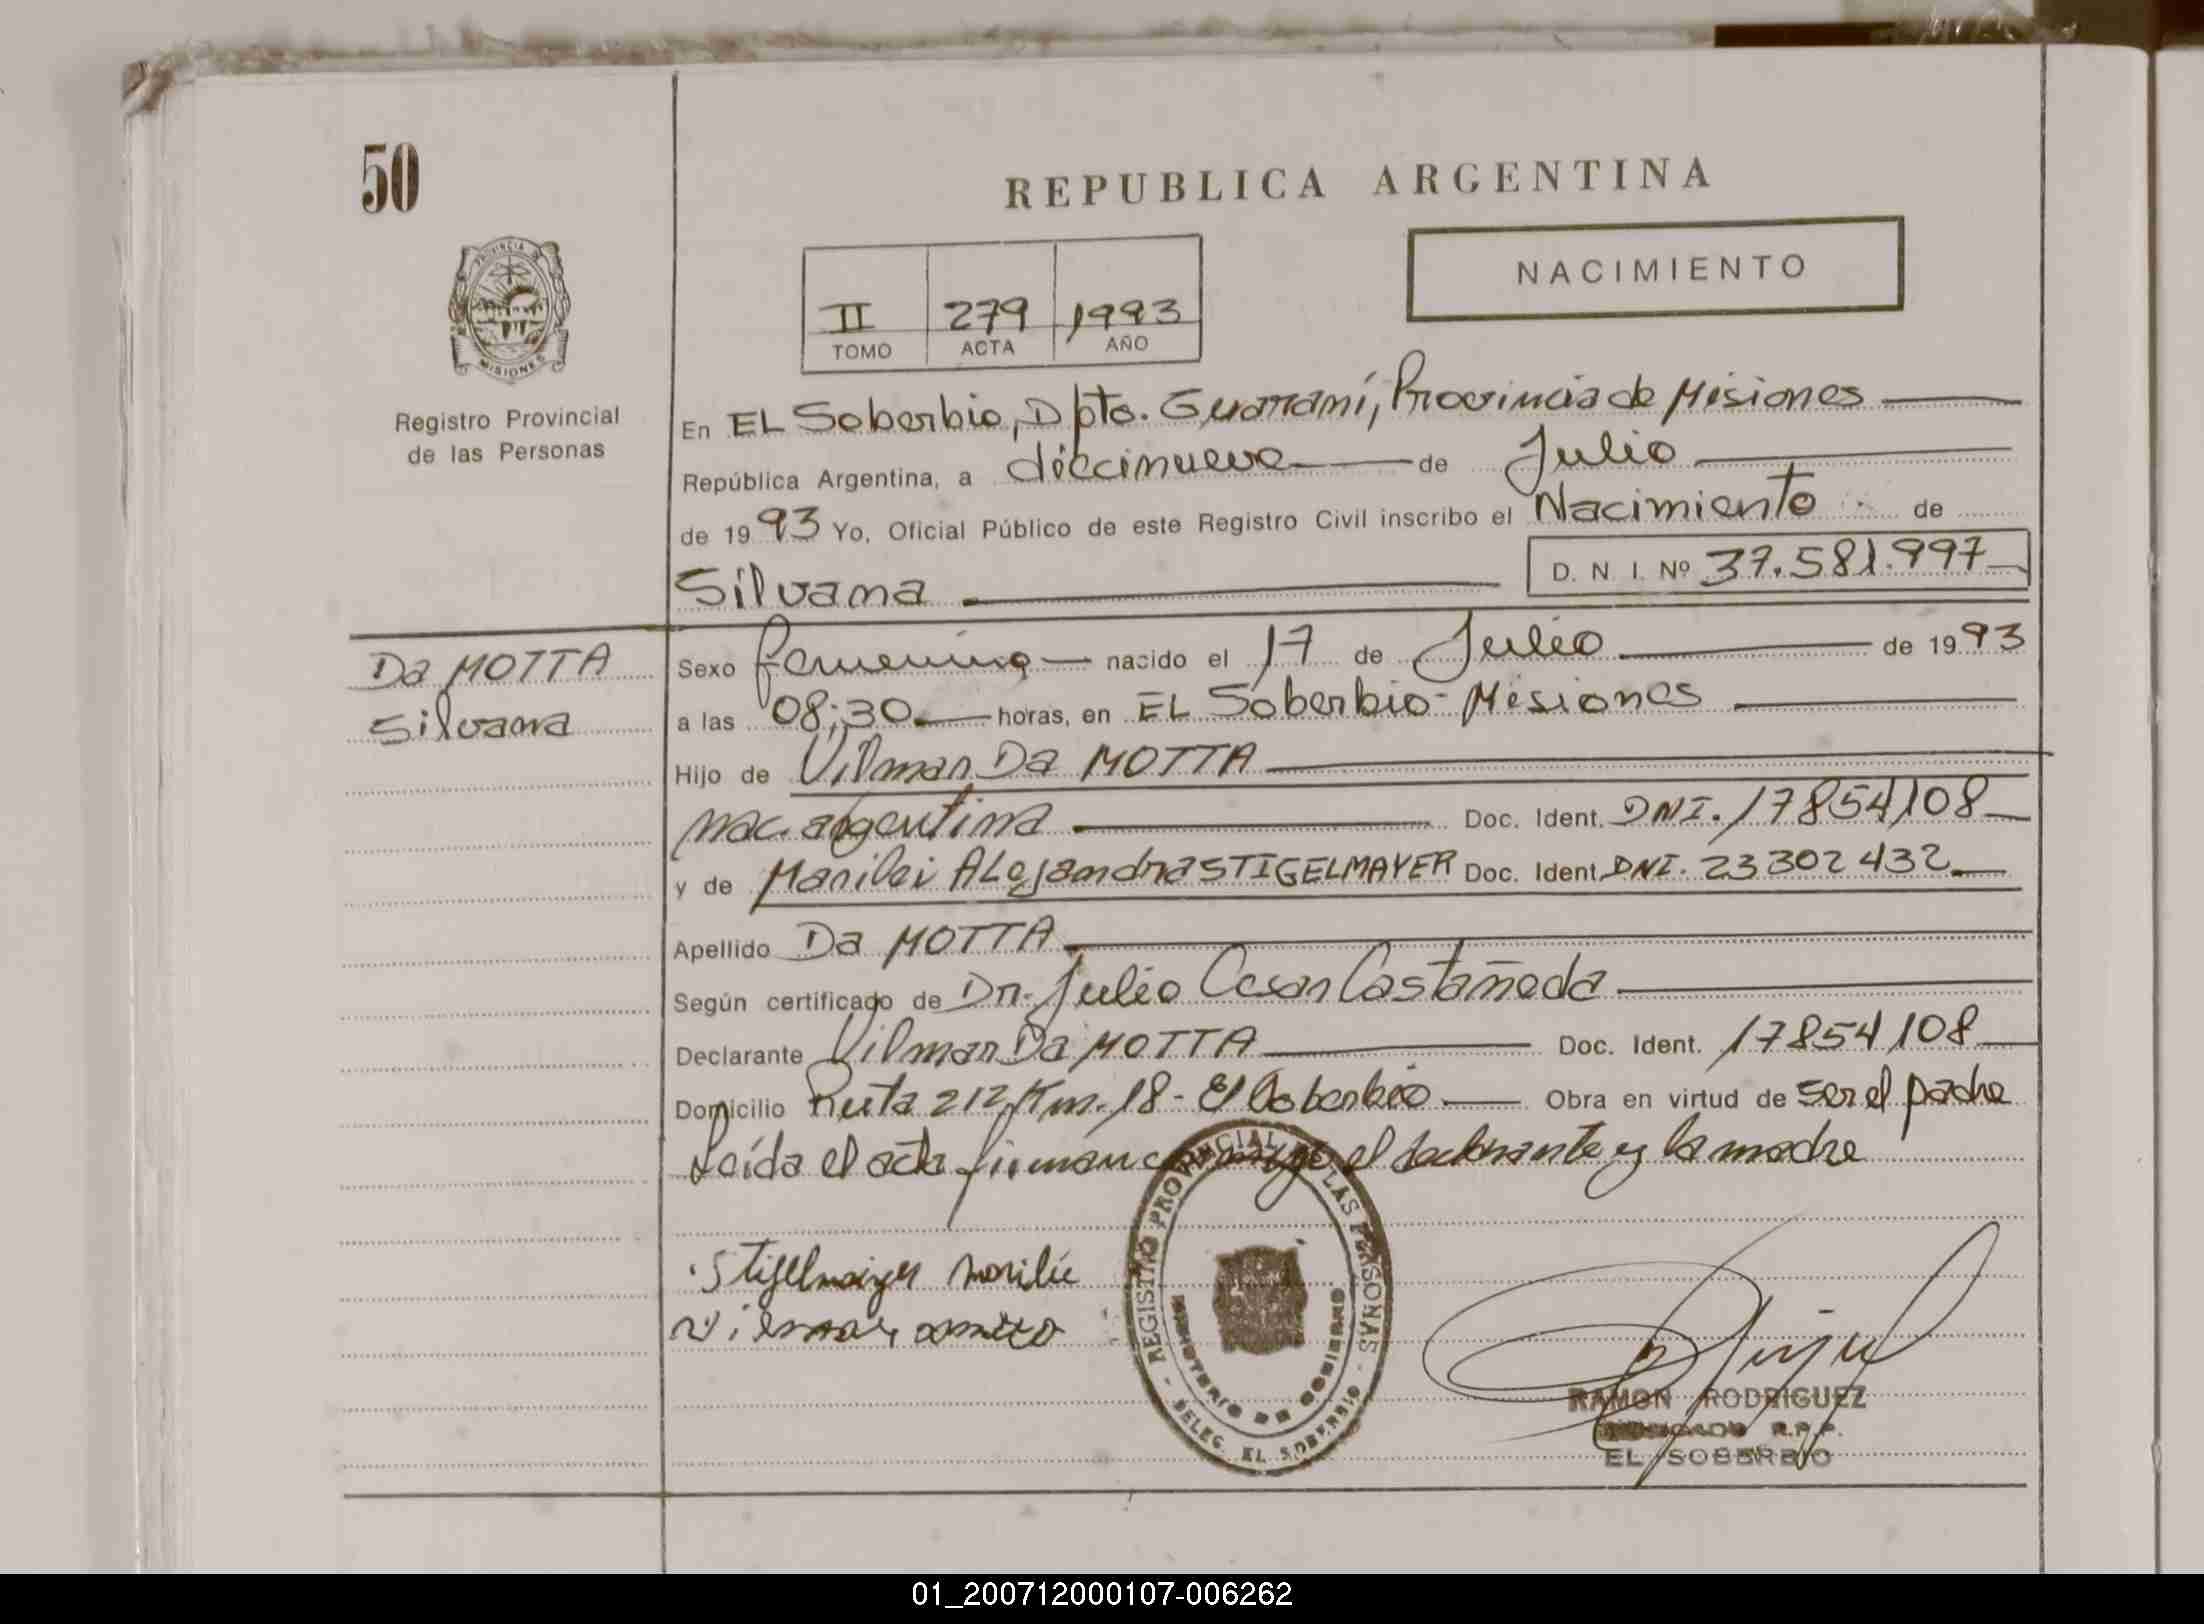 50
REPUBLICA ARGENTINA
NACIMIENTO
PROVINCIA DE
MISIONES
Registro Provincial
de las Personas
II 279 1993
TOMO ACTA AÑO
En EL Soberbio, Dpto. Guaraní, Provincia de Misiones
República Argentina, a diecinueve de Julio
de 1993 Yo, Oficial Público de este Registro Civil inscribo el Nacimiento de
Silvana D. N. I. Nº 37.581.997
Da MOTTA
Silvana
Sexo femenino nacido el 17 de Julio de 1993
a las 08:30 horas, en EL Soberbio - Misiones
Hijo de Vilmar Da MOTTA
nac. argentina Doc. Ident. DNI. 17854108
y de Marilei ALejandra STIGELMAYER Doc. Ident. DNI. 23302432
Apellido Da MOTTA
Según certificado de Dr. Julio Cesar Castañeda
Declarante Vilmar Da MOTTA Doc. Ident. 17854108
Domicilio Ruta 212 Km. 18 - El Soberbio Obra en virtud de ser el padre
Leída el acta firman conmigo el declarante y la madre
REGISTRO PROVINCIAL DE LAS PERSONAS
MINISTERIO DE GOBIERNO
- DELEG. EL SOBERBIO -
Stigelmaiyer Marilie
RAMON RODRIGUEZ
R.P.P.
EL SOBERBIO
01_200712000107-006262